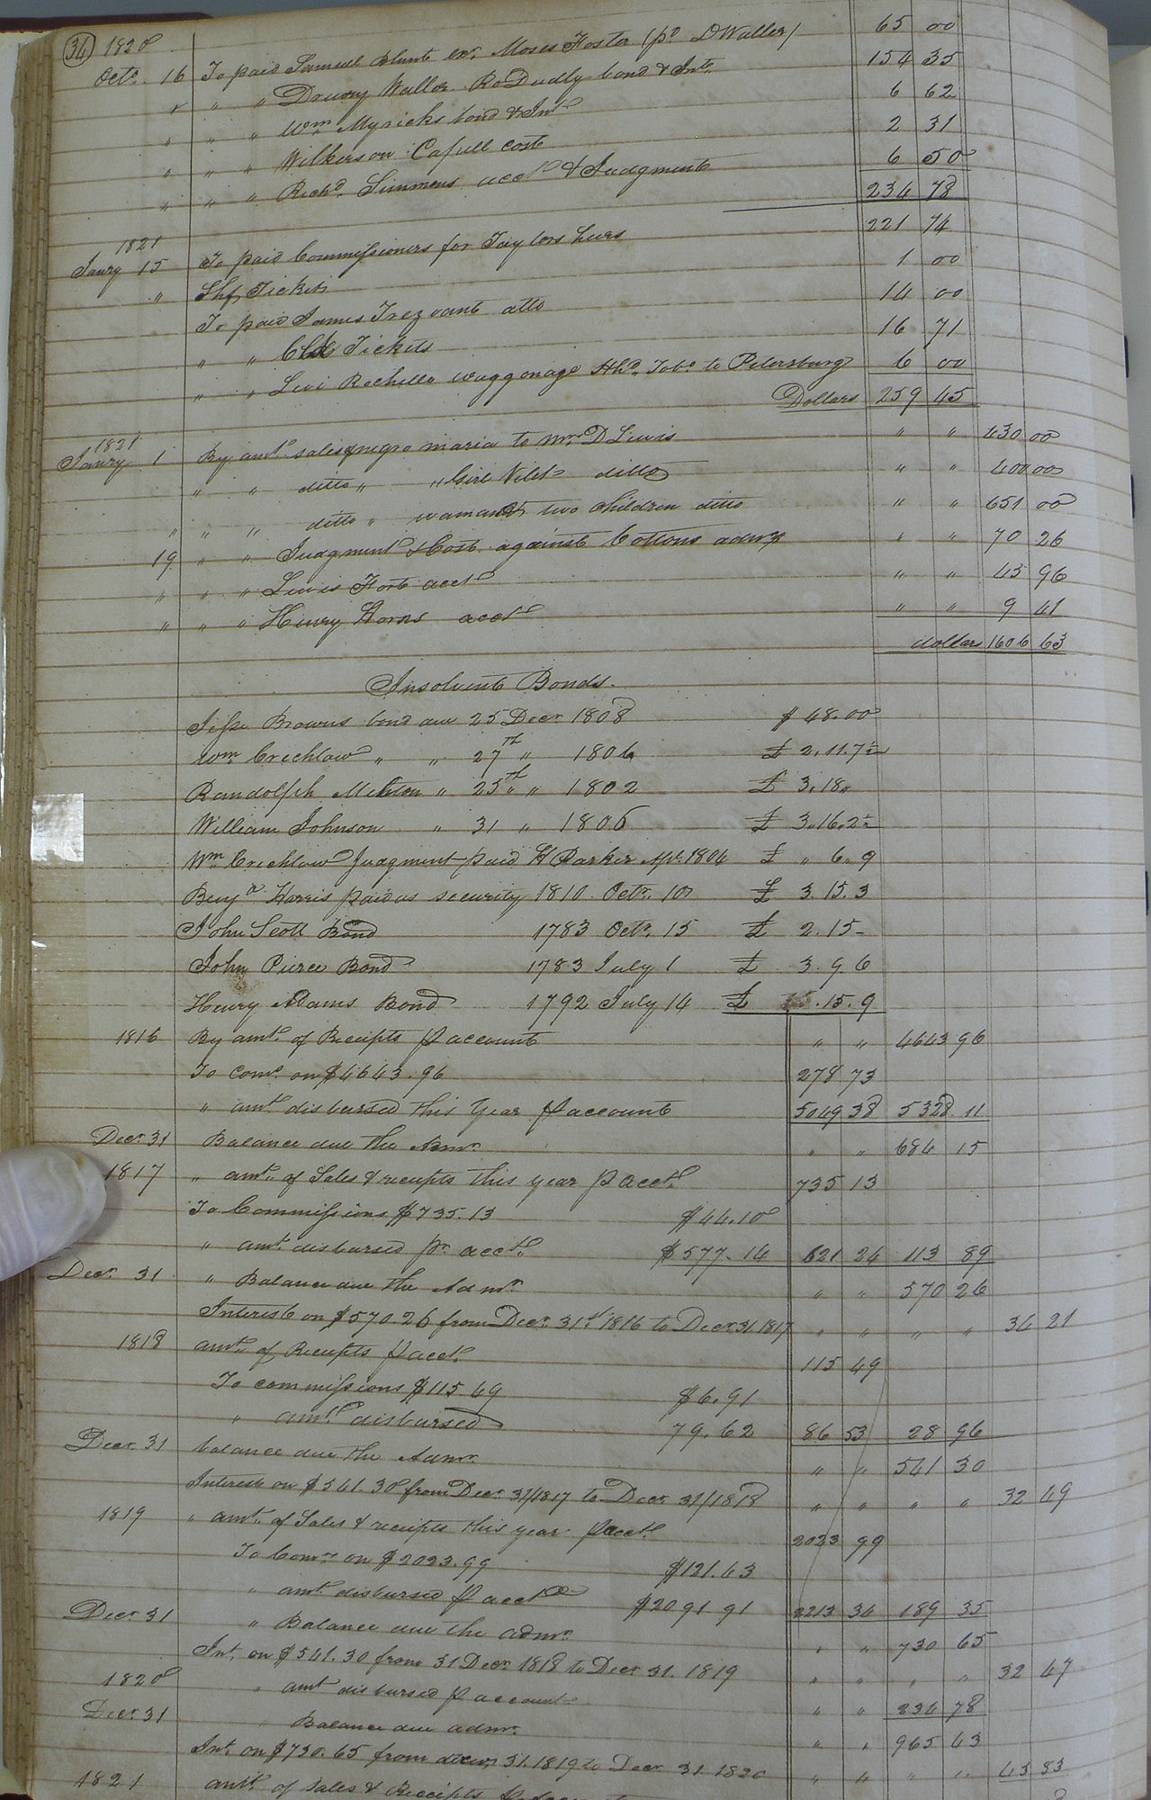 34 1820
Octo. 16 To paid Samuel Blunt exr. Moses Foster (pd D Waller) 65 00
" " " Drewry Waller Ro Dudly bond & Int. 154 35
" " " Wm Myricks bond & Int 6 62
" " " Wilkerson Capell cost 2 31
" " " Richd. Simmons acct & Judgment 6 50
234 78
1821
Jany 15 To paid Commissioners for Taylors heirs 221 74
" Shf Tickets 1 00
To paid James Trezvant atto 14 00
" " Clk Tickets 16 71
" " Levi Rochelle waggonage Hhd. Tobo. to Petersburg 6 00
Dollars 259 45
1821
Jany 1 By amt. sales negro maria to Mr D Lewis " " 430 00
" " ditto " " Girl Vilet ditto " " 400 00
" " " ditto " woman & two children ditto " " 651 00
19 " " Judgment & Cost against Cottons admr " " 70 26
" " " Lewis Fort acct " " 45 96
" " " Henry Horns acct " " 9 41
dollars 1606 63
Insolvent Bonds.
Jesse Browns bond due 25 Decr 1808 $ 48.00
Wm Crichlow " " 27th " 1806 £ 2.11.7½
Randolph Melton " 25th " 1802 £ 3.18"
William Johnson " 31 " 1806 £ 3.16.2½
Wm Crichlow Judgment paid H Parker Apl. 1804 £ " 6.9
Benja. Harris paid as security 1810 Octr. 10 £ 3.15.3
John Scott Bond 1783 Octr. 15 £ 2.15-
John Pierce Bond 1783 July 1 £ 3.9.6
Henry Adams Bond 1792 July 14 £ .15.9
1816 By amt. of Receipts p account " " 4643 96
To Coms. on $4643.96 278 73
" amt. disbursed this Year p account 5049 38 5328 11
Decr. 31 Balance due the Admr. " " 684 15
1817 " amt. of Sales & receipts this year p acct. 735 13
To Commissions $735.13 $44.10
" amt. disbursed pr acct. $577.14 621 24 113 89
Decr. 31 " Balance due the Admr. " " 570 26
Interest on $570.26 from Decr. 31st 1816 to Decr 31 1817 " " " " 34 21
1818 amt. of Receipts p acct. 115 49
To commissions $115.49 $6.91
" amt. disbursed 79.62 86 53 28 96
Decr. 31 balance due the Admr. " " 541 30
Interest on $541.30 from Decr. 31/1817 to Decr. 31/1818 " " " " 32 49
1819 " amt. of Sales & receipts this year p acct 2023 99
To Coms. on $2023.99 $121.43
" amt. disbursed p acct $2091 91 2213 34 189 35
Decr. 31 " Balance due the admr. " " 730 65
Int. on $541.30 from 31 Decr. 1818 to Decr. 31. 1819 " " " " 32 47
1820 " amt disbursed p account " " 234 78
Decr. 31 Balance due admr. " " 965 43
Int. on $730.65 from decem 31.1819 to Decr. 31. 1820 " " " " 43 83
1821 amt. of sales & Receipts